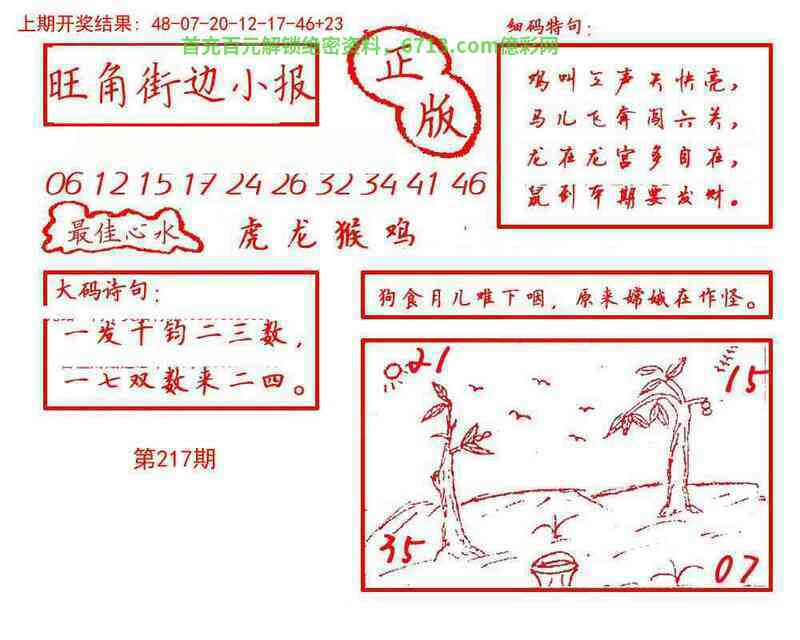 上期开奖结果：48-07-20-12-17-46+23
首充百元解锁绝密资料，6713.com億彩网
细码特句：
旺角街边小报
正版
鸡叫三声天快亮，
马儿飞奔闯六关，
龙在龙宫多自在，
鼠到本期要发财。
06 12 15 17 24 26 32 34 41 46
最佳心水
虎龙猴鸡
大码诗句：
一发千钧二三数，
一七双数来二四。
狗食月儿难下咽，原来嫦娥在作怪。
21
15
35
07
第217期